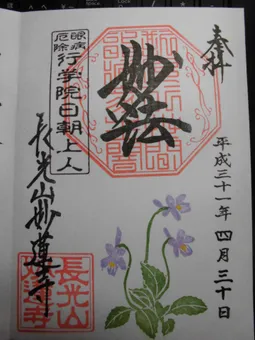 奉拝
平成三十一年 四月三十日
妙法
眼病
厄除
行学院日朝上人
長光山妙蓮寺
長光山
妙蓮寺